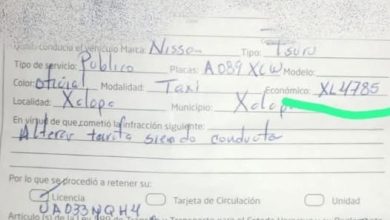 Quien conducía el vehículo Marca: Nissan Tipo: Tsuru
Tipo de servicio: Público Placas: A089XLW Modelo:
Color oficial Modalidad: Taxi Económico: XL4785
Localidad: Xalapa Municipio: Xalapa
En virtud de que cometió la infracción siguiente:
Alterar tarifa siendo conducta
Por lo que se procedió a retener su:
Licencia Tarjeta de Circulación Unidad
UA033NQH4